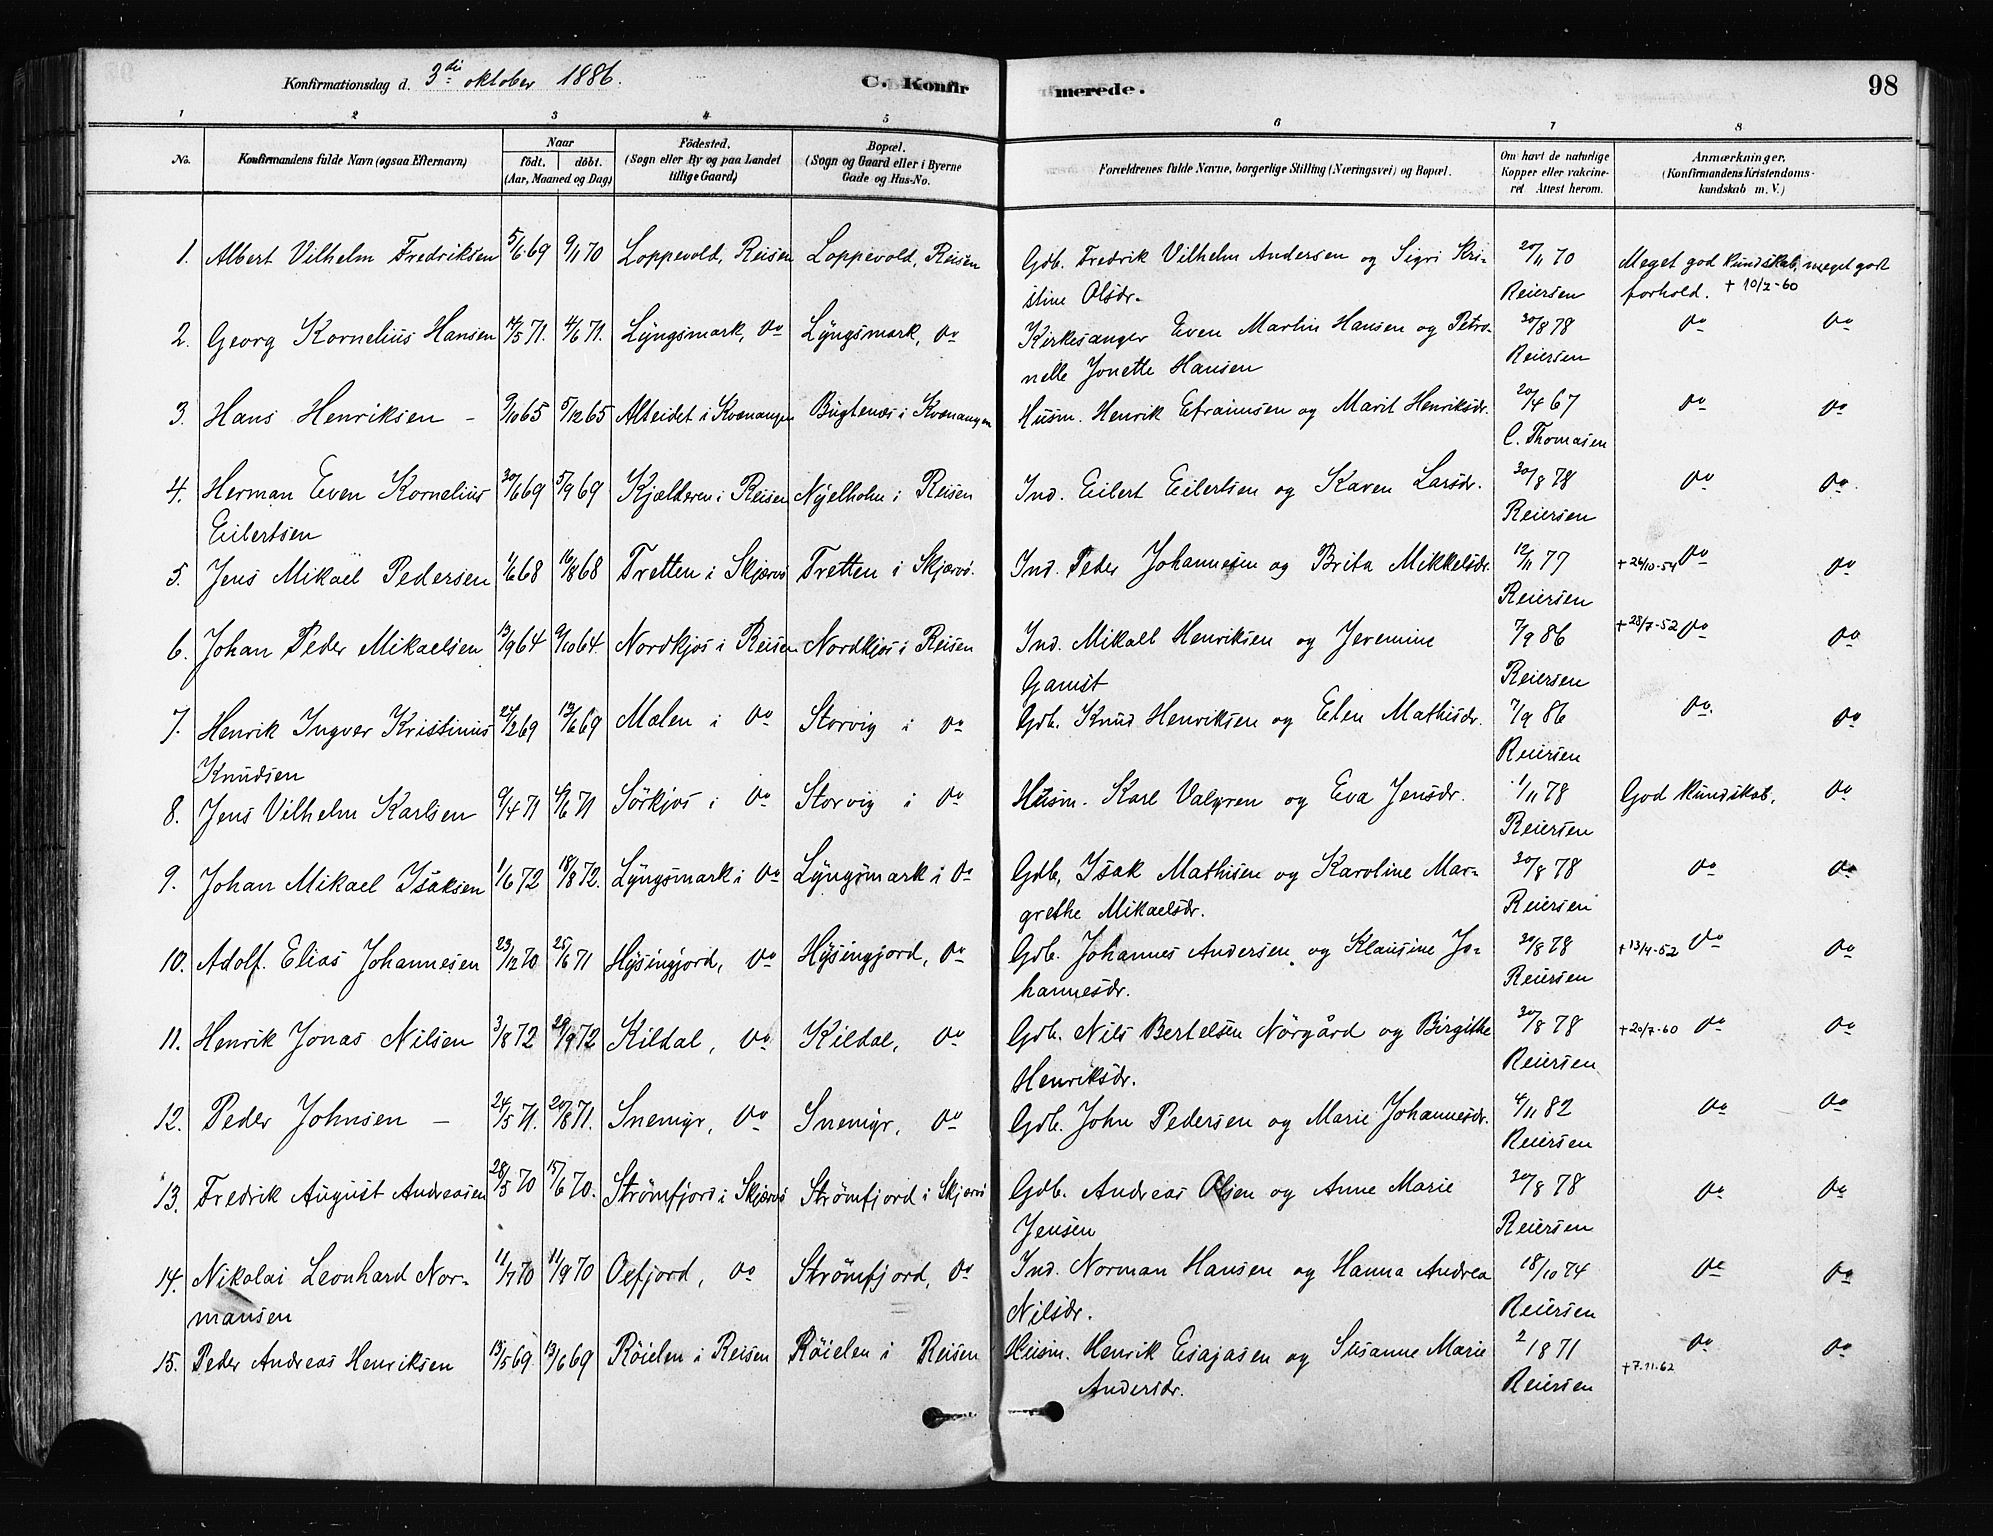 Konfirmationsdag d. 3die oktober 1886.
C. Konfirmerede.
98
1 2 3 4 5 6 7 8
No. Konfirmandens fulde Navn (ogsaa Efternavn) Naar födt. döbt. (Aar, Maaned og Dag) Födested. (Sogn eller By og paa Landet tillige Gaard) Bopæl. (Sogn og Gaard eller i Byerne Gade og Hus-No. Forældrenes fulde Navne, borgerlige Stilling (Næringsvei) og Bopæl. Om havt de naturlige Kopper eller vakcineret Attest herom. Anmærkninger. (Konfirmandens Kristendomskundskab m. V.)
1. Albert Vilhelm Fredriksen 5/6 69 9/1 70 Loppevold, Reisen Loppevold, Reisen Gdb. Fredrik Vilhelm Andersen og Sigri Kri- 20/11 70 Meget god kundskab, meget godt
stine Olsdr. Reiersen forhold. + 10/2-60
2. Georg Kornelius Hansen 4/5 71. 4/6 71. Lyngsmark, do Lyngsmark, do Kirkesanger Even Martin Hansen og Petro- 30/8 78 do do
nelle Jonette Hansen Reiersen
3. Hans Henriksen - 9/10 65 5/12 65 Alteidet i Kvænangen Bugtenæs i Kvænangen Husm. Henrik Efraimsen og Marit Henriksdr. 20/4 67 do do
C. Thomasen
4. Herman Even Kornelius 30/6 69 5/9 69 Kjælderen i Reisen Nyelholm i Reisen Ind. Eilert Eilertsen og Karen Larsdr. 30/8 78 do do
Eilertsen Reiersen
5. Jens Mikael Pedersen 1/6 68 16/8 68 Tretten i Skjærvö Tretten i Skjærvö. Ind. Peder Johannesen og Brita Mikkelsdr. 12/11 77 + 26/10-54 do do
Reiersen
6. Johan Peder Mikaelsen 13/9 64 9/10 64. Nordkjos i Reisen Nordkjos i Reisen Ind. Mikael Henriksen og Jeremine 7/9 86 + 28/7-52 do do
Gamst Reiersen
7. Henrik Ingver Kristinus 27/2 69 13/6 69 Mælen i do Storvig i do Gdb. Knud Henriksen og Elen Mathisdr. 7/9 86 do do
Knudsen Reiersen
8. Jens Vilhelm Karlsen 9/4 71 4/6 71 Sörkjos i do Storvig i do Husm. Karl Valgren og Eva Jensdr. 1/11 78 God kundskab, do
Reiersen
9. Johan Mikael Isaksen 1/6 72 18/8 72. Lyngsmark i do Lyngsmark i do Gdb. Isak Mathisen og Karoline Mar- 30/8 78 do do
grethe Mikaelsdr. Reiersen
10. Adolf Elias Johannesen 23/12 70 25/6 71 Hysingjord, do Hysingjord, do Gdb. Johannes Andersen og Klausine Jo- 30/8 78 + 13/4-52 do do
hannesdr. Reiersen
11. Henrik Jonas Nilsen 3/8 72 29/9 72 Kildal, do Kildal, do Gdb. Nils Bertelsen Nörgård og Birgithe 30/8 78 + 20/7-60 do do
Henriksdr. Reiersen
12. Peder Johnsen - 24/5 71. 20/8 71. Snemyr, do Snemyr, do Gdb. John Pedersen og Marie Johannesdr. 4/11 82 do do
Reiersen
13. Fredrik August Andreasen 28/5 70 15/6 70. Strömfjord i Skjærvö Strömfjord i Skjærvö Gdb. Andreas Olsen og Anne Marie 30/8 78 do do
Jensen Reiersen
14. Nikolai Leonhard Nor- 11/7 70 11/9 70 Oxfjord, do Strömfjord, do Ind. Norman Hansen og Hanna Andrea 18/10 74 do do
mansen Nilsdr. Reiersen
15. Peder Andreas Henriksen 13/5 69. 13/6 69 Röielen i Reisen Röielen i Reisen Husm. Henrik Esajasen og Susanne Marie 2/1 871 + 7.11-62 do do
Andersdr. Reiersen